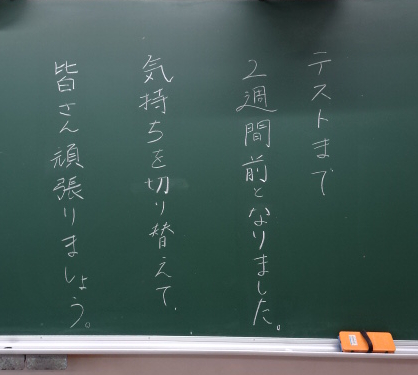 テストまで
2週間前となりました。
気持ちを切り替えて、
皆さん頑張りましょう。